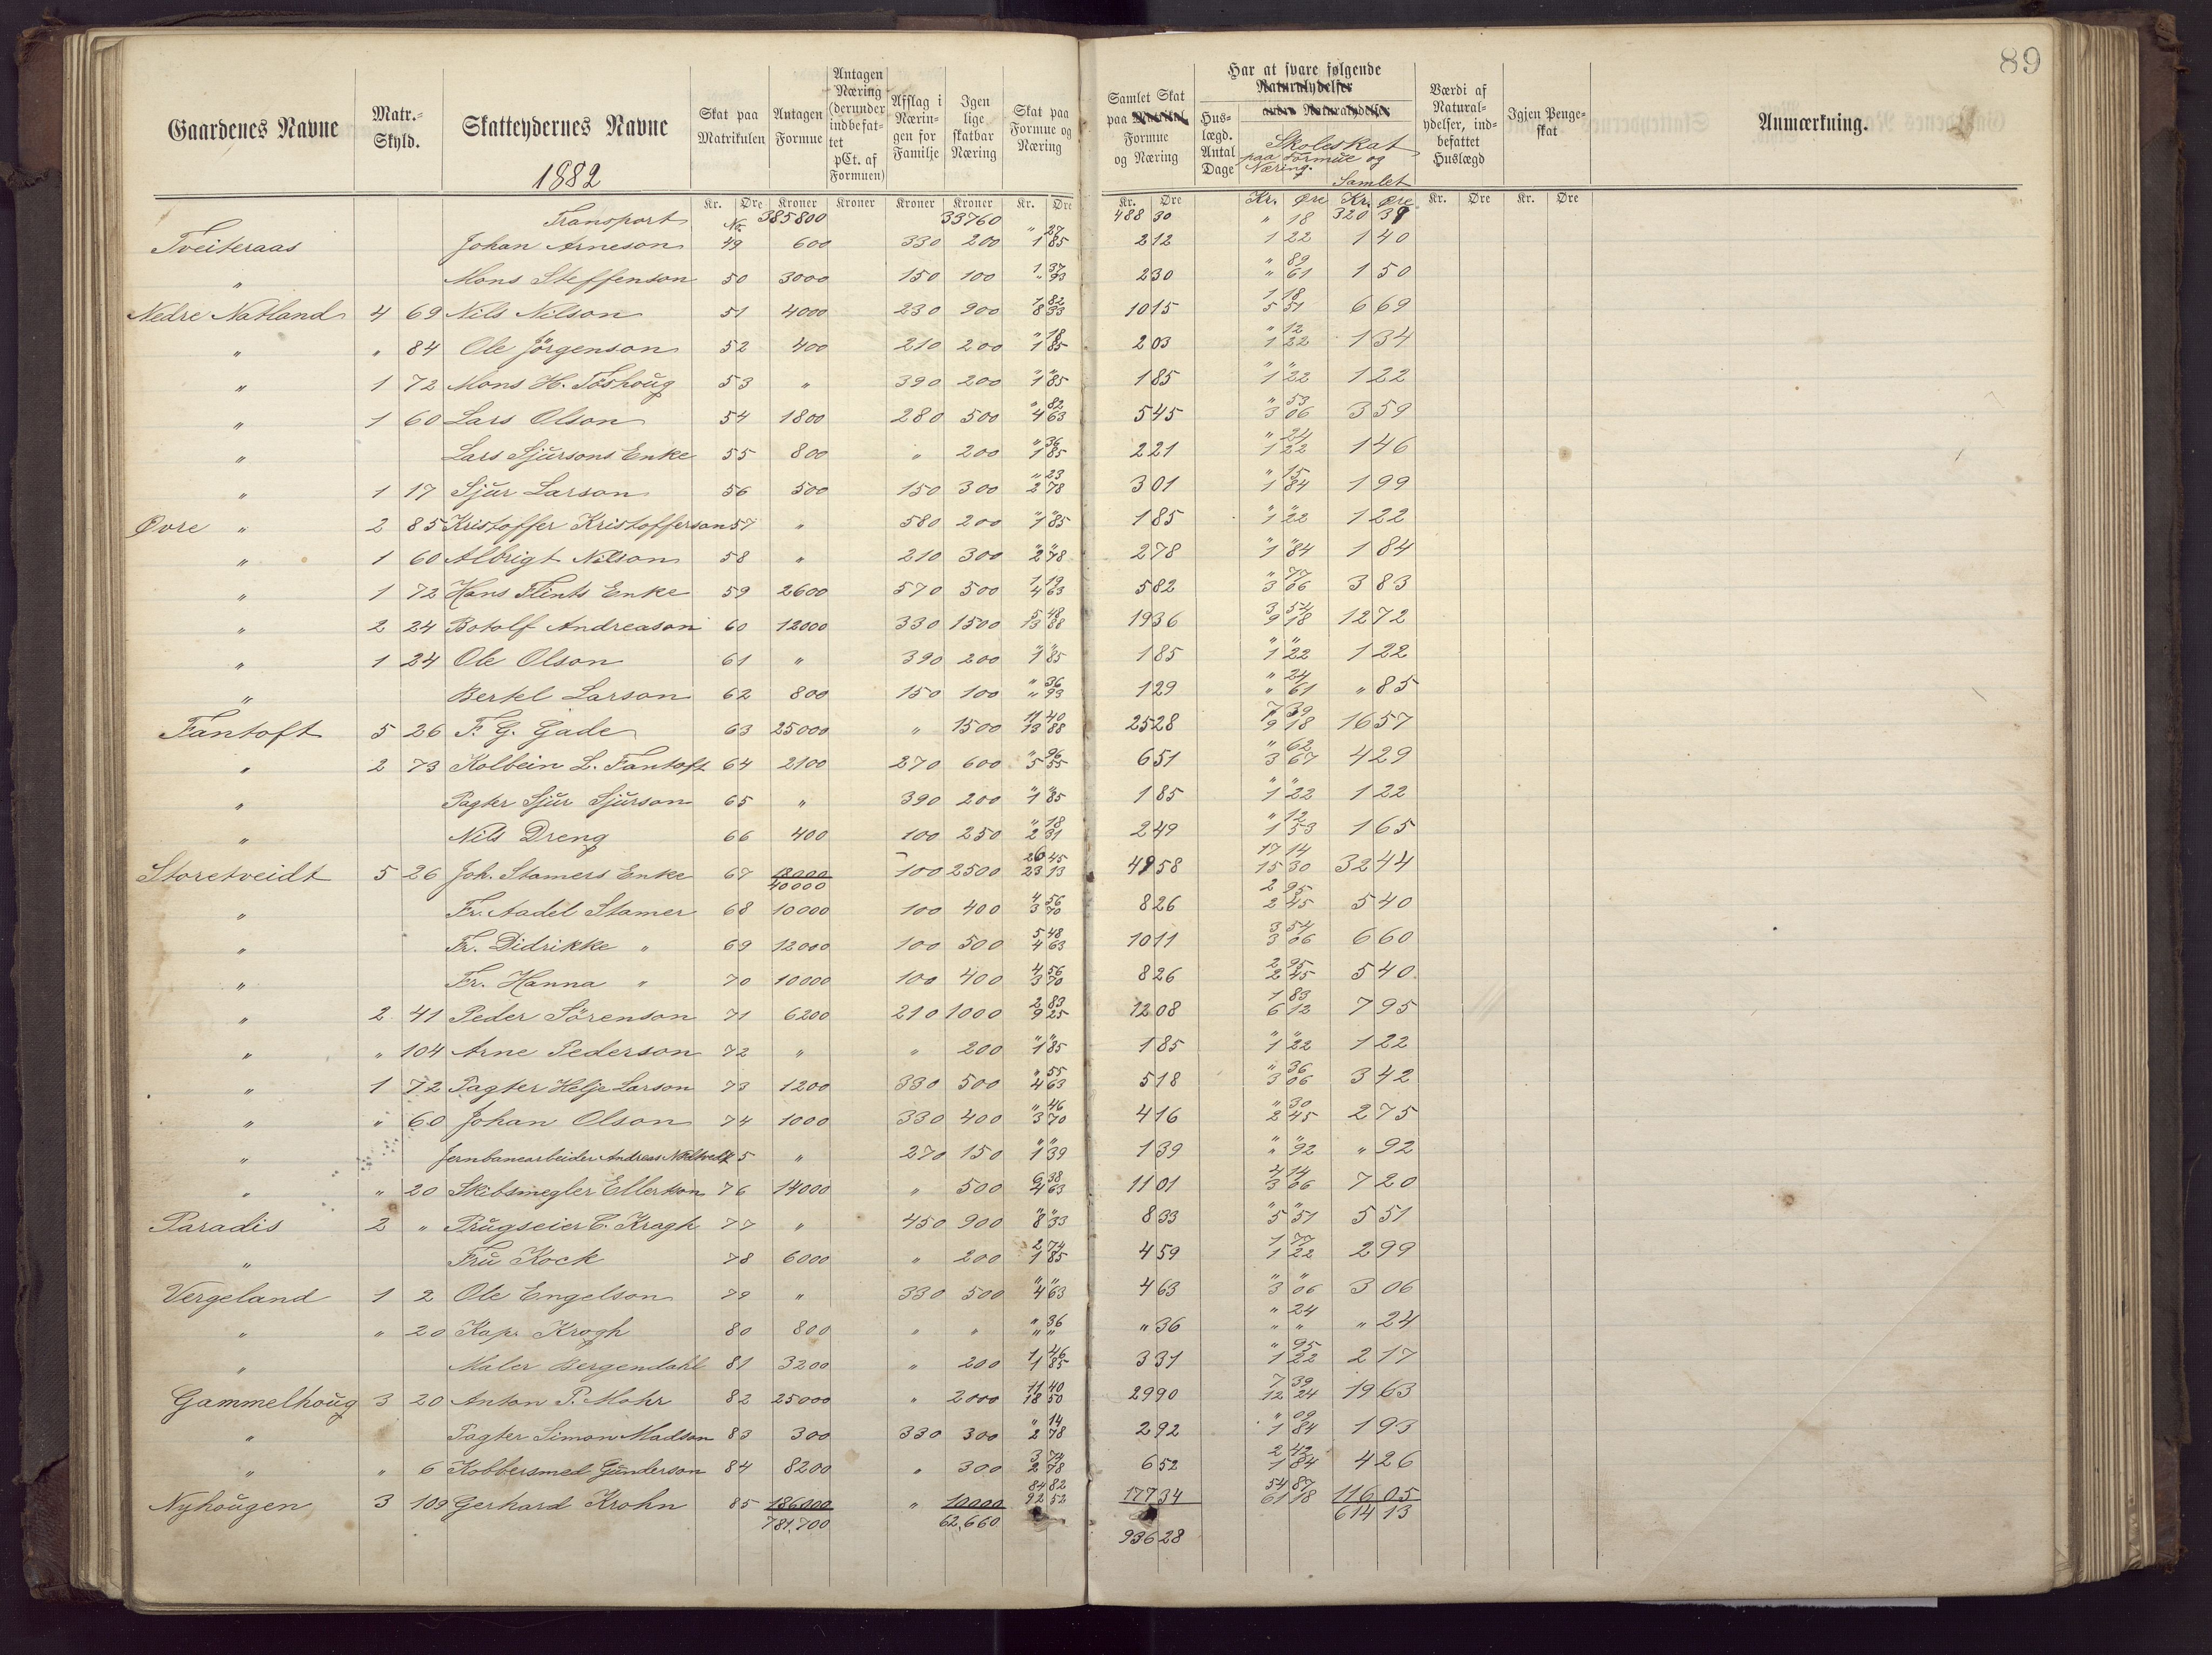 89
Gaardenes Navne | Matr.-Skyld. | Skatteydernes Navne 1882 | Skat paa Matrikulen | Antagen Formue | Antagen Næring (derunder indbefattet pCt. af Formuen) | Afslag i Næringen for Familje | Igen lige skatbar Næring | Skat paa Formue og Næring | Samlet Skat paa Matrikul Formue og Næring | Huslægd. Antal Dage | Har at svare følgende Naturalydelser Skoleskat paa Formue og Næring. Samlet | Værdi af Naturalydelser, indbefattet Huslægd | Igjen Pengeskat | Anmærkning.
Kr. Øre Kroner Kroner Kroner Kroner Kr. Øre Kr. Øre Kr. Øre Kr. Øre Kr. Øre Kr. Øre
Transport No 385800 33760 488 30 320 39
Tveiteraas Johan Arneson 49 600 330 200 " 27 1 85 2 12 " 18 1 22 1 40
" Mons Steffenson 50 3000 150 100 1 37 " 93 2 30 " 89 " 61 1 50
Nedre Natland 4 69 Nils Nilson 51 4000 230 900 1 82 8 33 10 15 1 18 5 51 6 69
" " 84 Ole Jörgenson 52 400 210 200 " 18 1 85 2 03 " 12 1 22 1 34
" 1 72 Mons H. Toshoug 53 " 390 200 " " 1 85 1 85 " " 1 22 1 22
" 1 60 Lars Olson 54 1800 280 500 " 82 4 63 5 45 " 53 3 06 3 59
" Lars Sjursons Enke 55 800 " 200 " 36 1 85 2 21 " 24 1 22 1 46
" 1 17 Sjur Larson 56 500 150 300 " 23 2 78 3 01 " 15 1 84 1 99
Øvre " 2 85 Kristoffer Kristofferson 57 " 580 200 " " 1 85 1 85 " " 1 22 1 22
" 1 60 Albrigt Nilson 58 " 210 300 " " 2 78 2 78 " " 1 84 1 84
" 1 72 Hans Flints Enke 59 2600 570 500 1 19 4 63 5 82 " 77 3 06 3 83
" 2 24 Botolf Andreason 60 12000 330 1500 5 48 13 88 19 36 3 54 9 18 12 72
" 1 24 Ole Olson 61 " 390 200 " " 1 85 1 85 " " 1 22 1 22
" Bertel Larson 62 800 150 100 " 36 " 93 1 29 " 24 " 61 " 85
Fantoft 5 26 F. G. Gade 63 25000 " 1500 11 40 13 88 25 28 7 39 9 18 16 57
" 2 73 Kolbein L. Fantoft 64 2100 270 600 " 96 5 55 6 51 " 62 3 67 4 29
" Pagter Sjur Sjurson 65 " 390 200 " " 1 85 1 85 " " 1 22 1 22
" Nils Dreng 66 400 100 250 " 18 2 31 2 49 " 12 1 53 1 65
Storetveidt 5 26 Joh. Stamers Enke 67 18000 40000 100 2500 26 45 23 13 49 58 17 14 15 30 32 44
" Fr. Aadel Stamer 68 10000 100 400 4 56 3 70 8 26 2 95 2 45 5 40
" Fr. Didrikke " 69 12000 100 500 5 48 4 63 10 11 3 54 3 06 6 60
" Fr. Hanna " 70 10000 100 400 4 56 3 70 8 26 2 95 2 45 5 40
" 2 41 Peder Sörenson 71 6200 210 1000 2 83 9 25 12 08 1 83 6 12 7 95
" " 104 Arne Pederson 72 " " 200 " " 1 85 1 85 " " 1 22 1 22
" 1 72 Pagter Helje Larson 73 1200 330 500 " 55 4 63 5 18 " 36 3 06 3 42
" " 60 Johan Olson 74 1000 330 400 " 46 3 70 4 16 " 30 2 45 2 75
" Jernbanearbeider Andreas 75 " 270 150 " " 1 39 1 39 " " " 92 " 92
" " 20 Skibsmegler Ellerson 76 14000 " 500 6 38 4 63 11 01 4 14 3 06 7 20
Paradis 2 " Brugseier C. Kragh 77 " 450 900 " " 8 33 8 33 " " 5 51 5 51
" Fru Kock 78 6000 " 200 2 74 1 85 4 59 1 77 1 22 2 99
Vergeland 1 2 Ole Engelson 79 " 330 500 " " 4 63 4 63 " " 3 06 3 06
" " 20 Kap. Krogh 80 800 " " " 36 " " " 36 " 24 " " " 24
" Maler Bergendahl 81 3200 " 200 1 46 1 85 3 31 " 95 1 22 2 17
Gammelhoug 3 20 Anton P. Mohr 82 25000 " 2000 11 40 18 50 29 90 7 39 12 24 19 63
" Pagter Simon Madson 83 300 330 300 " 14 2 78 2 92 " 09 1 84 1 93
" " 6 Kobbersmed Gunderson 84 8200 " 300 3 74 2 78 6 52 2 42 1 84 4 26
Nyhougen 3 109 Gerhard Krohn 85 186000 " 10000 84 82 92 52 177 34 54 87 61 18 116 05
781,700 62,660 936 28 614 13